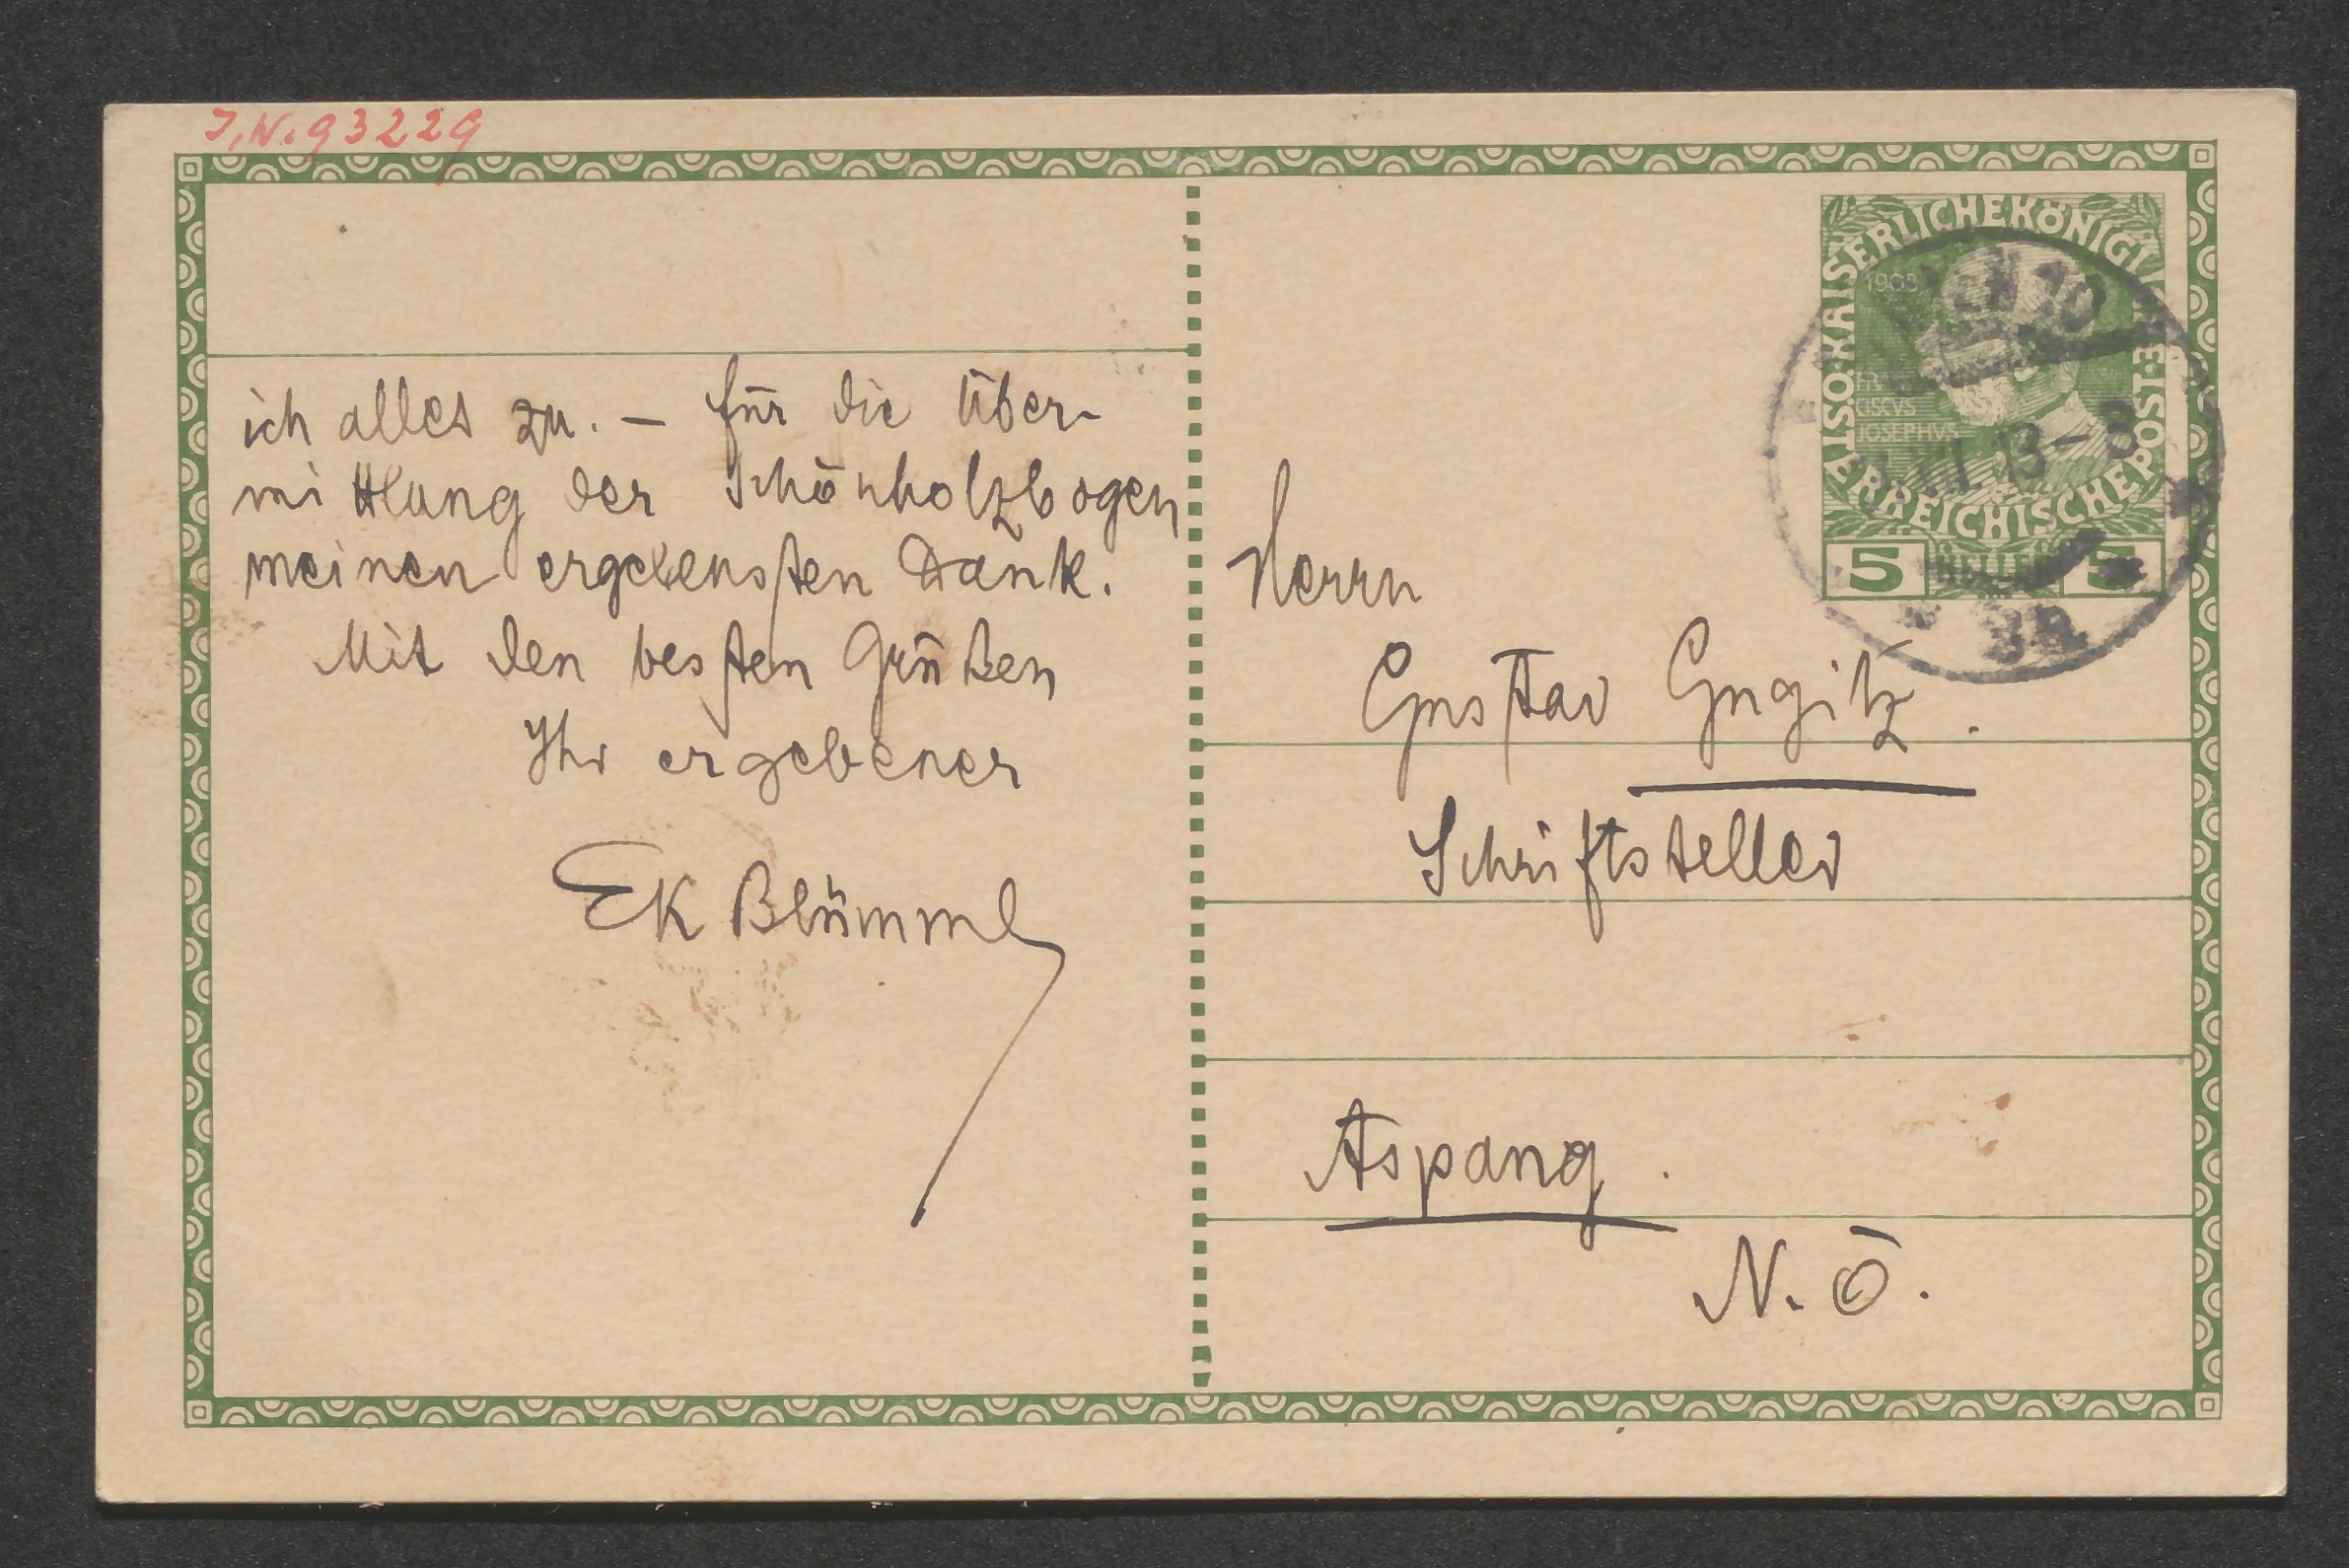 I.N. 93229
ich alles zu. – Für die Über-
mittlung der Schönholzbogen
meinen ergebensten Dank.
Mit den besten Grüßen
Ihr ergebener
EK Blümml
KAISERLICHE KÖNIGL
ÖSTERREICHISCHE POST
1908
JOSEPHVS
5 HELLER 5
WIEN 10
13 – 8
Herrn
Gustav Gugitz.
Schriftsteller
Aspang.
N.Ö.